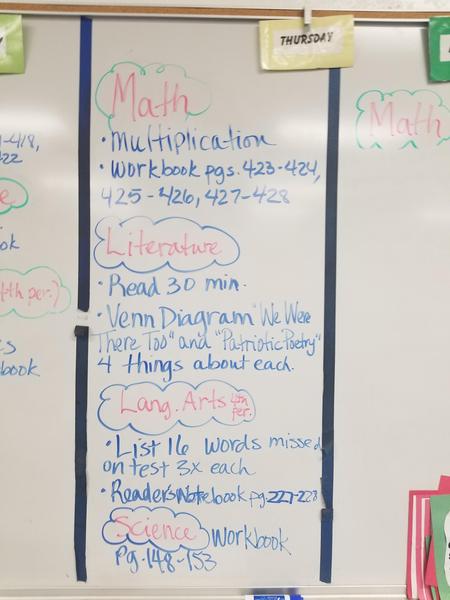 THURSDAY
-418,
Math
Math
• Multiplication
• Workbook pgs. 423-424,
425-426, 427-428
Literature
• Read 30 min.
• Venn Diagram "We Were
There Too" and "Patriotic Poetry"
4 things about each.
Lang. Arts 4th
per.
• List 16 words missed
on test 3x each
• Reader's Notebook pg. 227-228
Science Workbook
Pg. 148-153
4th per.)